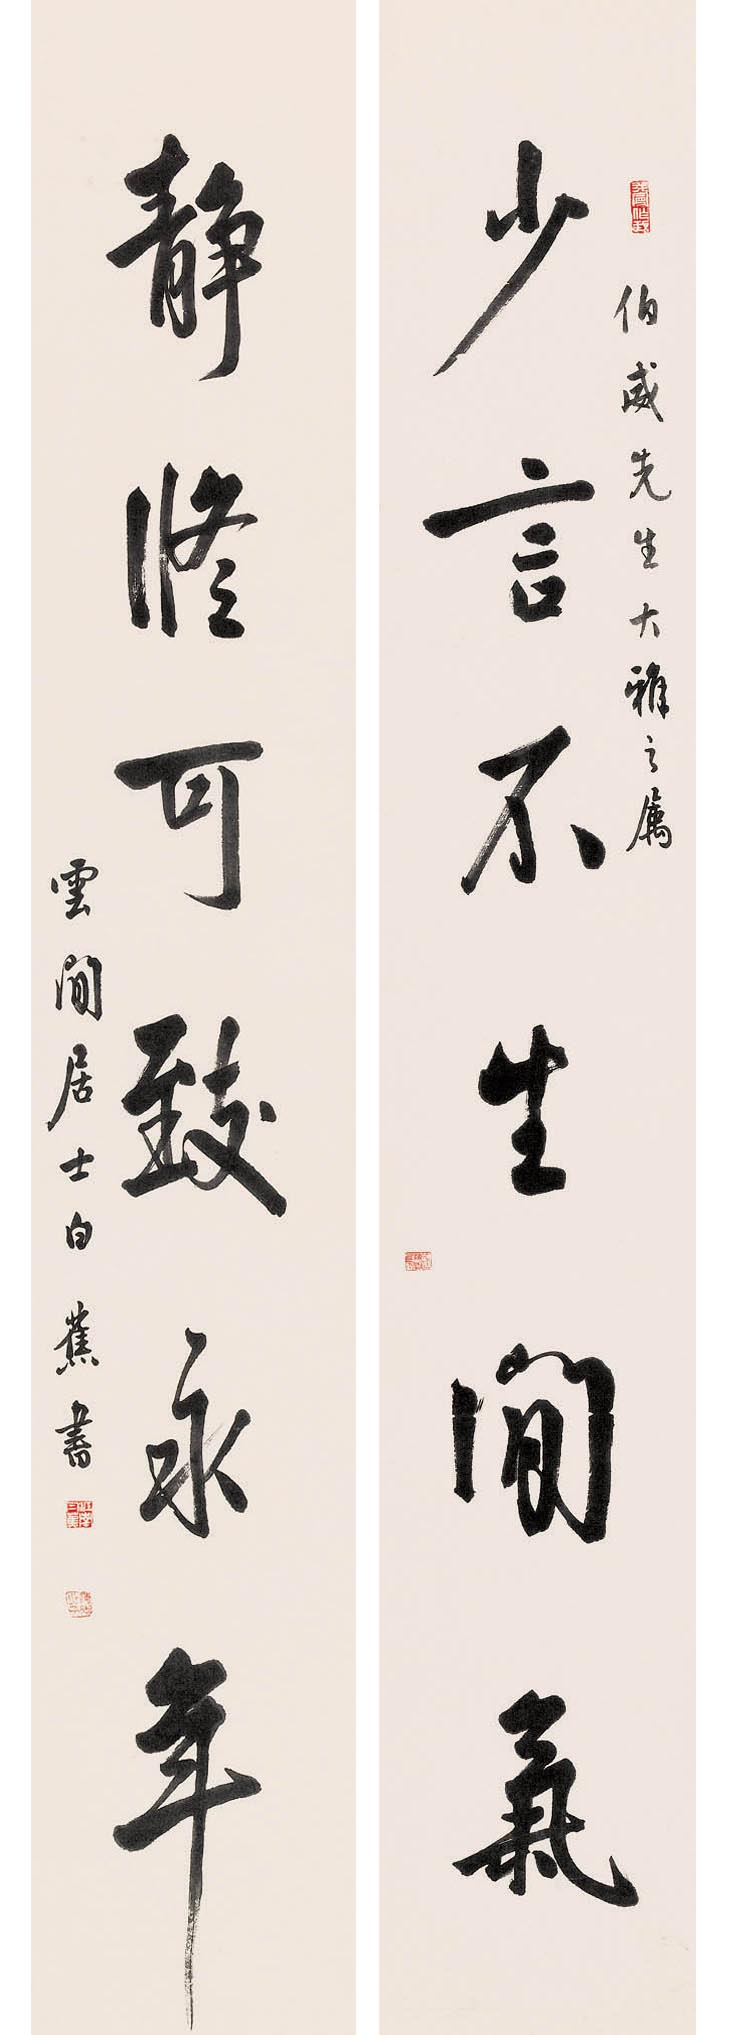 伯威先生大雅之屬
少言不生閒氣
靜修可致永年
雲間居士白蕉書